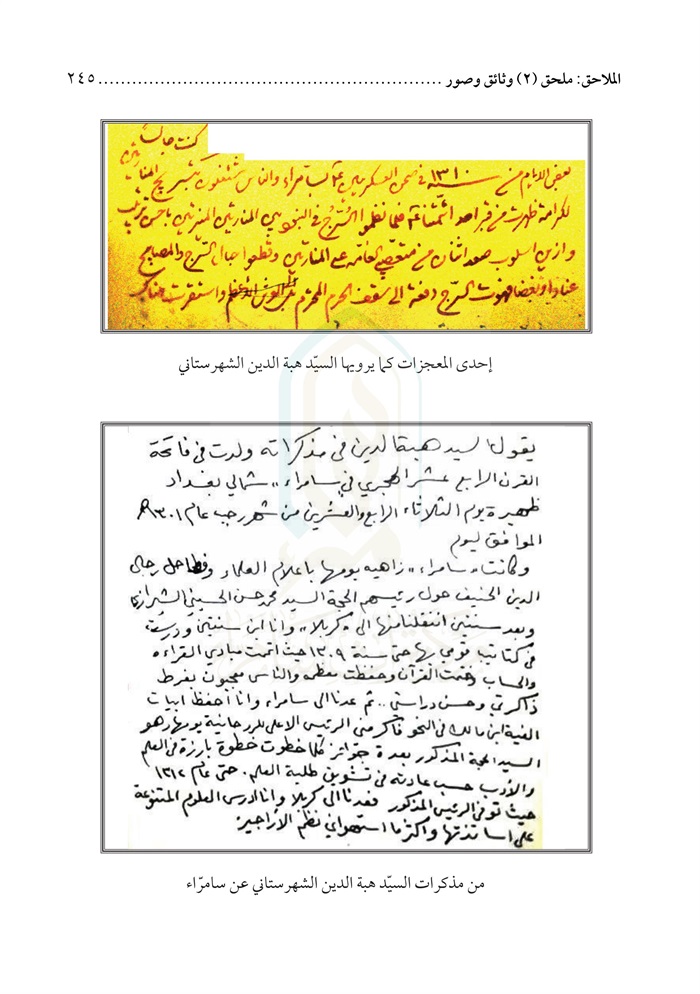 الملاحق: ملحق (٢) وثائق وصور ............................................................. ٢٤٥
كنت جالساً
بعض الايام من سنة ١٣١٠ في صحن العسكريين ع بسامراء والناس مشتغلون بتسريج المنائر
لكرامة ظهرت من قبر احد ائمتنا ع فلما نظموا السُّرج في المنارتين باحسن ترتيب
وازين اسلوب صعد اثنان من متعصبي العامة على المنارتين وقطعوا حبال السرج والمصابيح
عناداً وبغضاً فهوت السرج دفعة الى سقف الحرم المحترم واستقرت هناك
إحدى المعجزات كما يرويها السيّد هبة الدين الشهرستاني
يقول السيد هبة الدين في مذكراته ولدت في فاتحة
القرن الرابع عشر الهجري في سامراء،، شمالي بغداد
ظهيرة يوم الثلاثاء الرابع والعشرين من شهر رجب عام ١٣٠١هـ
الموافق ليوم
وكانت «سامراء» زاهيه يومها باعلام العلماء وفطاحل رجال
الدين الحنيف حول رئيسهم الحجة السيد محمد حسن الحسيني الشيرازي
وبعد سنتين انتقلنا منها الى «كربلا» وانا ابن سنتين ودرست
في كتاتيب قومي بها حتى سنة ١٣٠٩ حيث اتممت مبادي القراءه
والحساب وختمت القرآن وحفظت معظمه والناس معجبون بفرط
ذاكرتي وحسن دراستي .. ثم عدنا الى سامراء وانا أحفظ ابيات
الفية ابن مالك في النحو فأكرمني الرئيس الاعلى للروحانية يومها وهو
السيد الحجة المذكور بعدة جوائز كلما خطوت خطوة بارزة في العلم
والأدب حسب عادته في تشويق طلبة العلم. حتى عام ١٣١٢
حيث توفى الرئيس المذكور فعدنا الى كربلا وانا ادرس العلوم المتنوعة
على اساتذتها واكثر ما استهواني نظم الأراجيز.
من مذكرات السيّد هبة الدين الشهرستاني عن سامرّاء